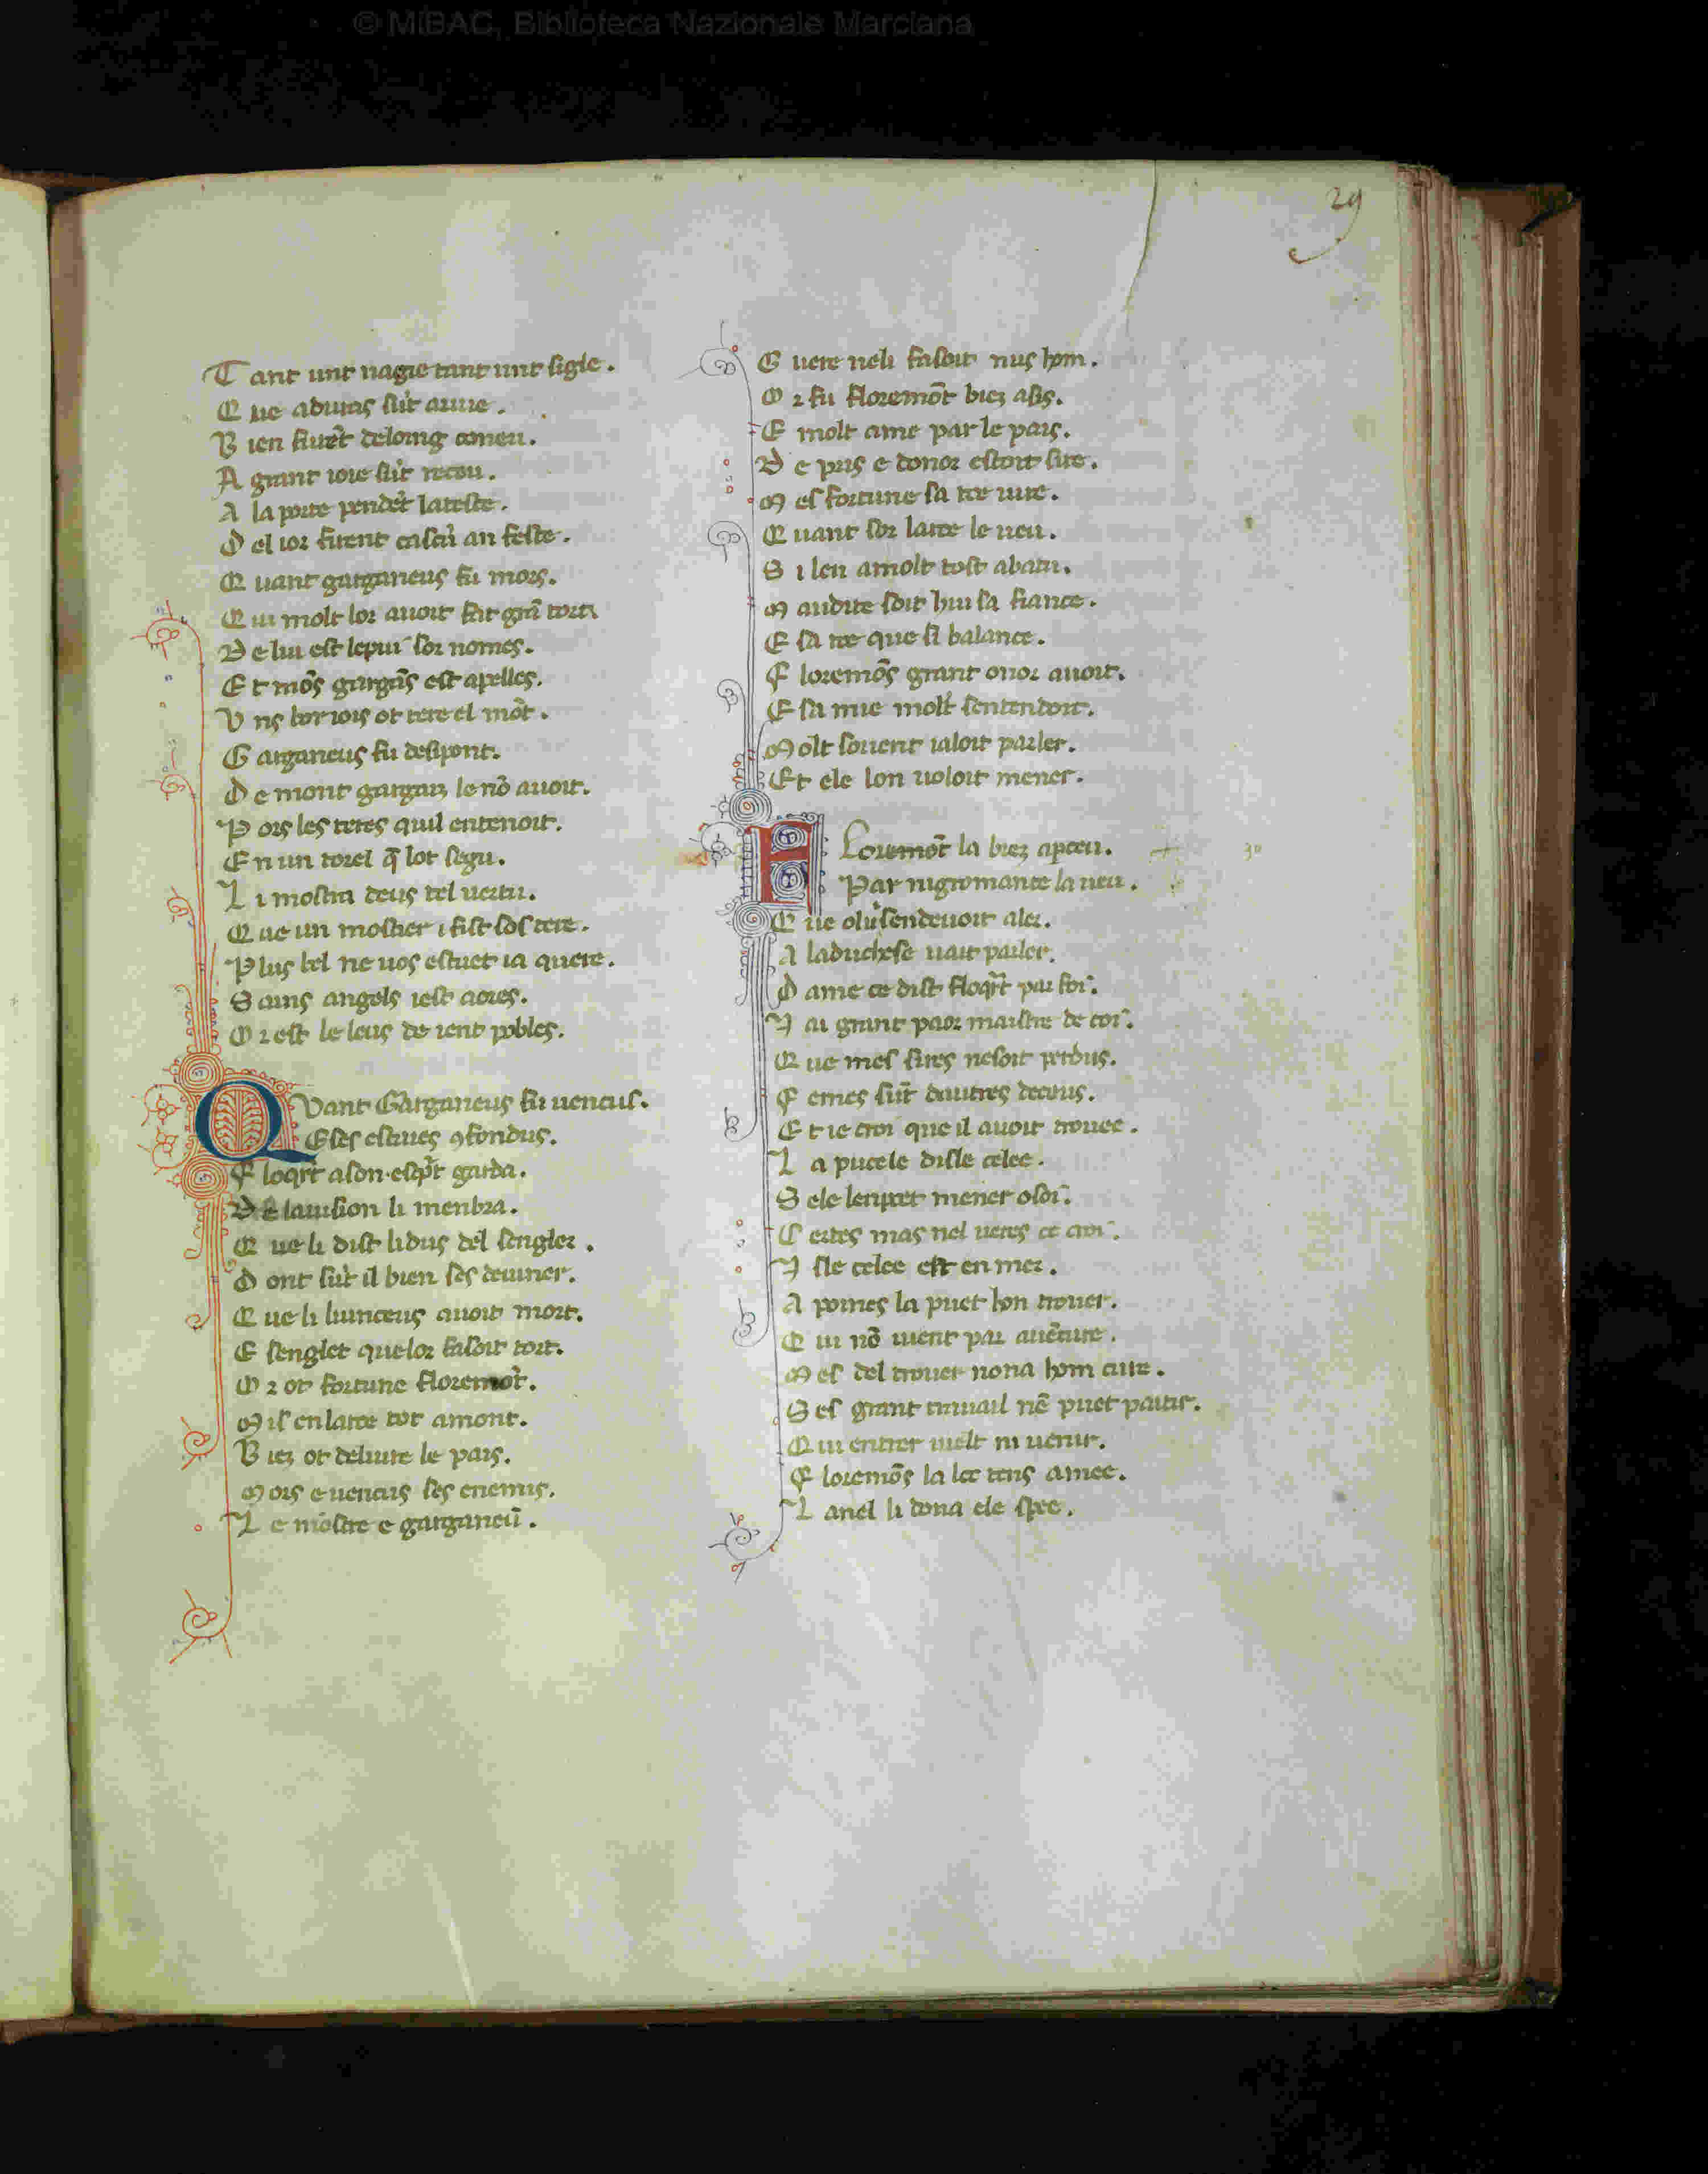 © MiBAC, Biblioteca Nazionale Marciana
29
T ant unt nagie tant unt sigle.
Q ue a sũt
B ien fuuet de loing coneu.
A grant ioie sũt receu.
A la porte pendẽt la teste.
D el ior firent cascũ an feste.
Q uant garganeus fu mors.
Q ui molt lor auoit fait grã tort.
D e lui est le pui sor nomes.
E t mõs gargãs est apelles.
U ns ior iois ot tere el mõt.
G arganeus fu desipont.
D e mont gargaz le nõ auoit.
P ors les teres quil en tenoit.
E n un torel q̃ lot segu.
L i mostra deus tel uertu.
Q ue un mostier i fist sos tere.
P lus bel ne uos estuet ia quere.
S ains angels iest aores.
O r est le leus de ient pobles.
Q Vant Garganeus fu uencus.
E ses esclaues ꝯfondus.
F loqrt a son garda.
D e lauision li menbra.
Q ue li dist li dus del sengler.
D ont sũt il bien ses deuiner.
Q ue li liuncens auoit mort.
E sengler que lor faisoit tort.
O r ot fortune floremõt.
M is en larce tot amont.
B iez ot deliure le pais.
M ors e uencus ses enemis.
L e mostre e garganeũ.
G uere ne li fasoit nus hom.
O r fu floremõt biez asis.
E molt ame par le pais.
D e pris e donor estoit sire.
M es fortune sa roe uire.
Q uant sor larce le ueu.
S i len a molt tost abatu.
M audite soit hui sa fiance.
E sa roe que si balance.
F loremõs grant onor auoit.
E sa mie molt sentendoit.
M olt souent i aloit parler.
E t ele lon uoloit mener.
F Loremõt la biez apceu.
Par nigromance la ueu.
Q ue o lui sen deuoit aler.
A la duchese uait parler.
D ame ce dist floqrt par foi.
I ai grant paor maistre de toi.
Q ue mes sires ne soit perdus.
F emes sũt dautres deceus.
E t ie croi que il auoit trouee.
L a pucele disle celee.
S ele len puet mener o soi.
C ertes mas nel ueres ce croi.
I sle celee est en mer.
A poines la puet hon trouer.
Q ui nõ uient par auẽture.
M es del trouer nona hom cure.
S es grant trauail nẽ puet partir.
Q ui entrer uielt ni uenir.
F loremõs la lõc tens amee.
L anel li dona ele spee.
30